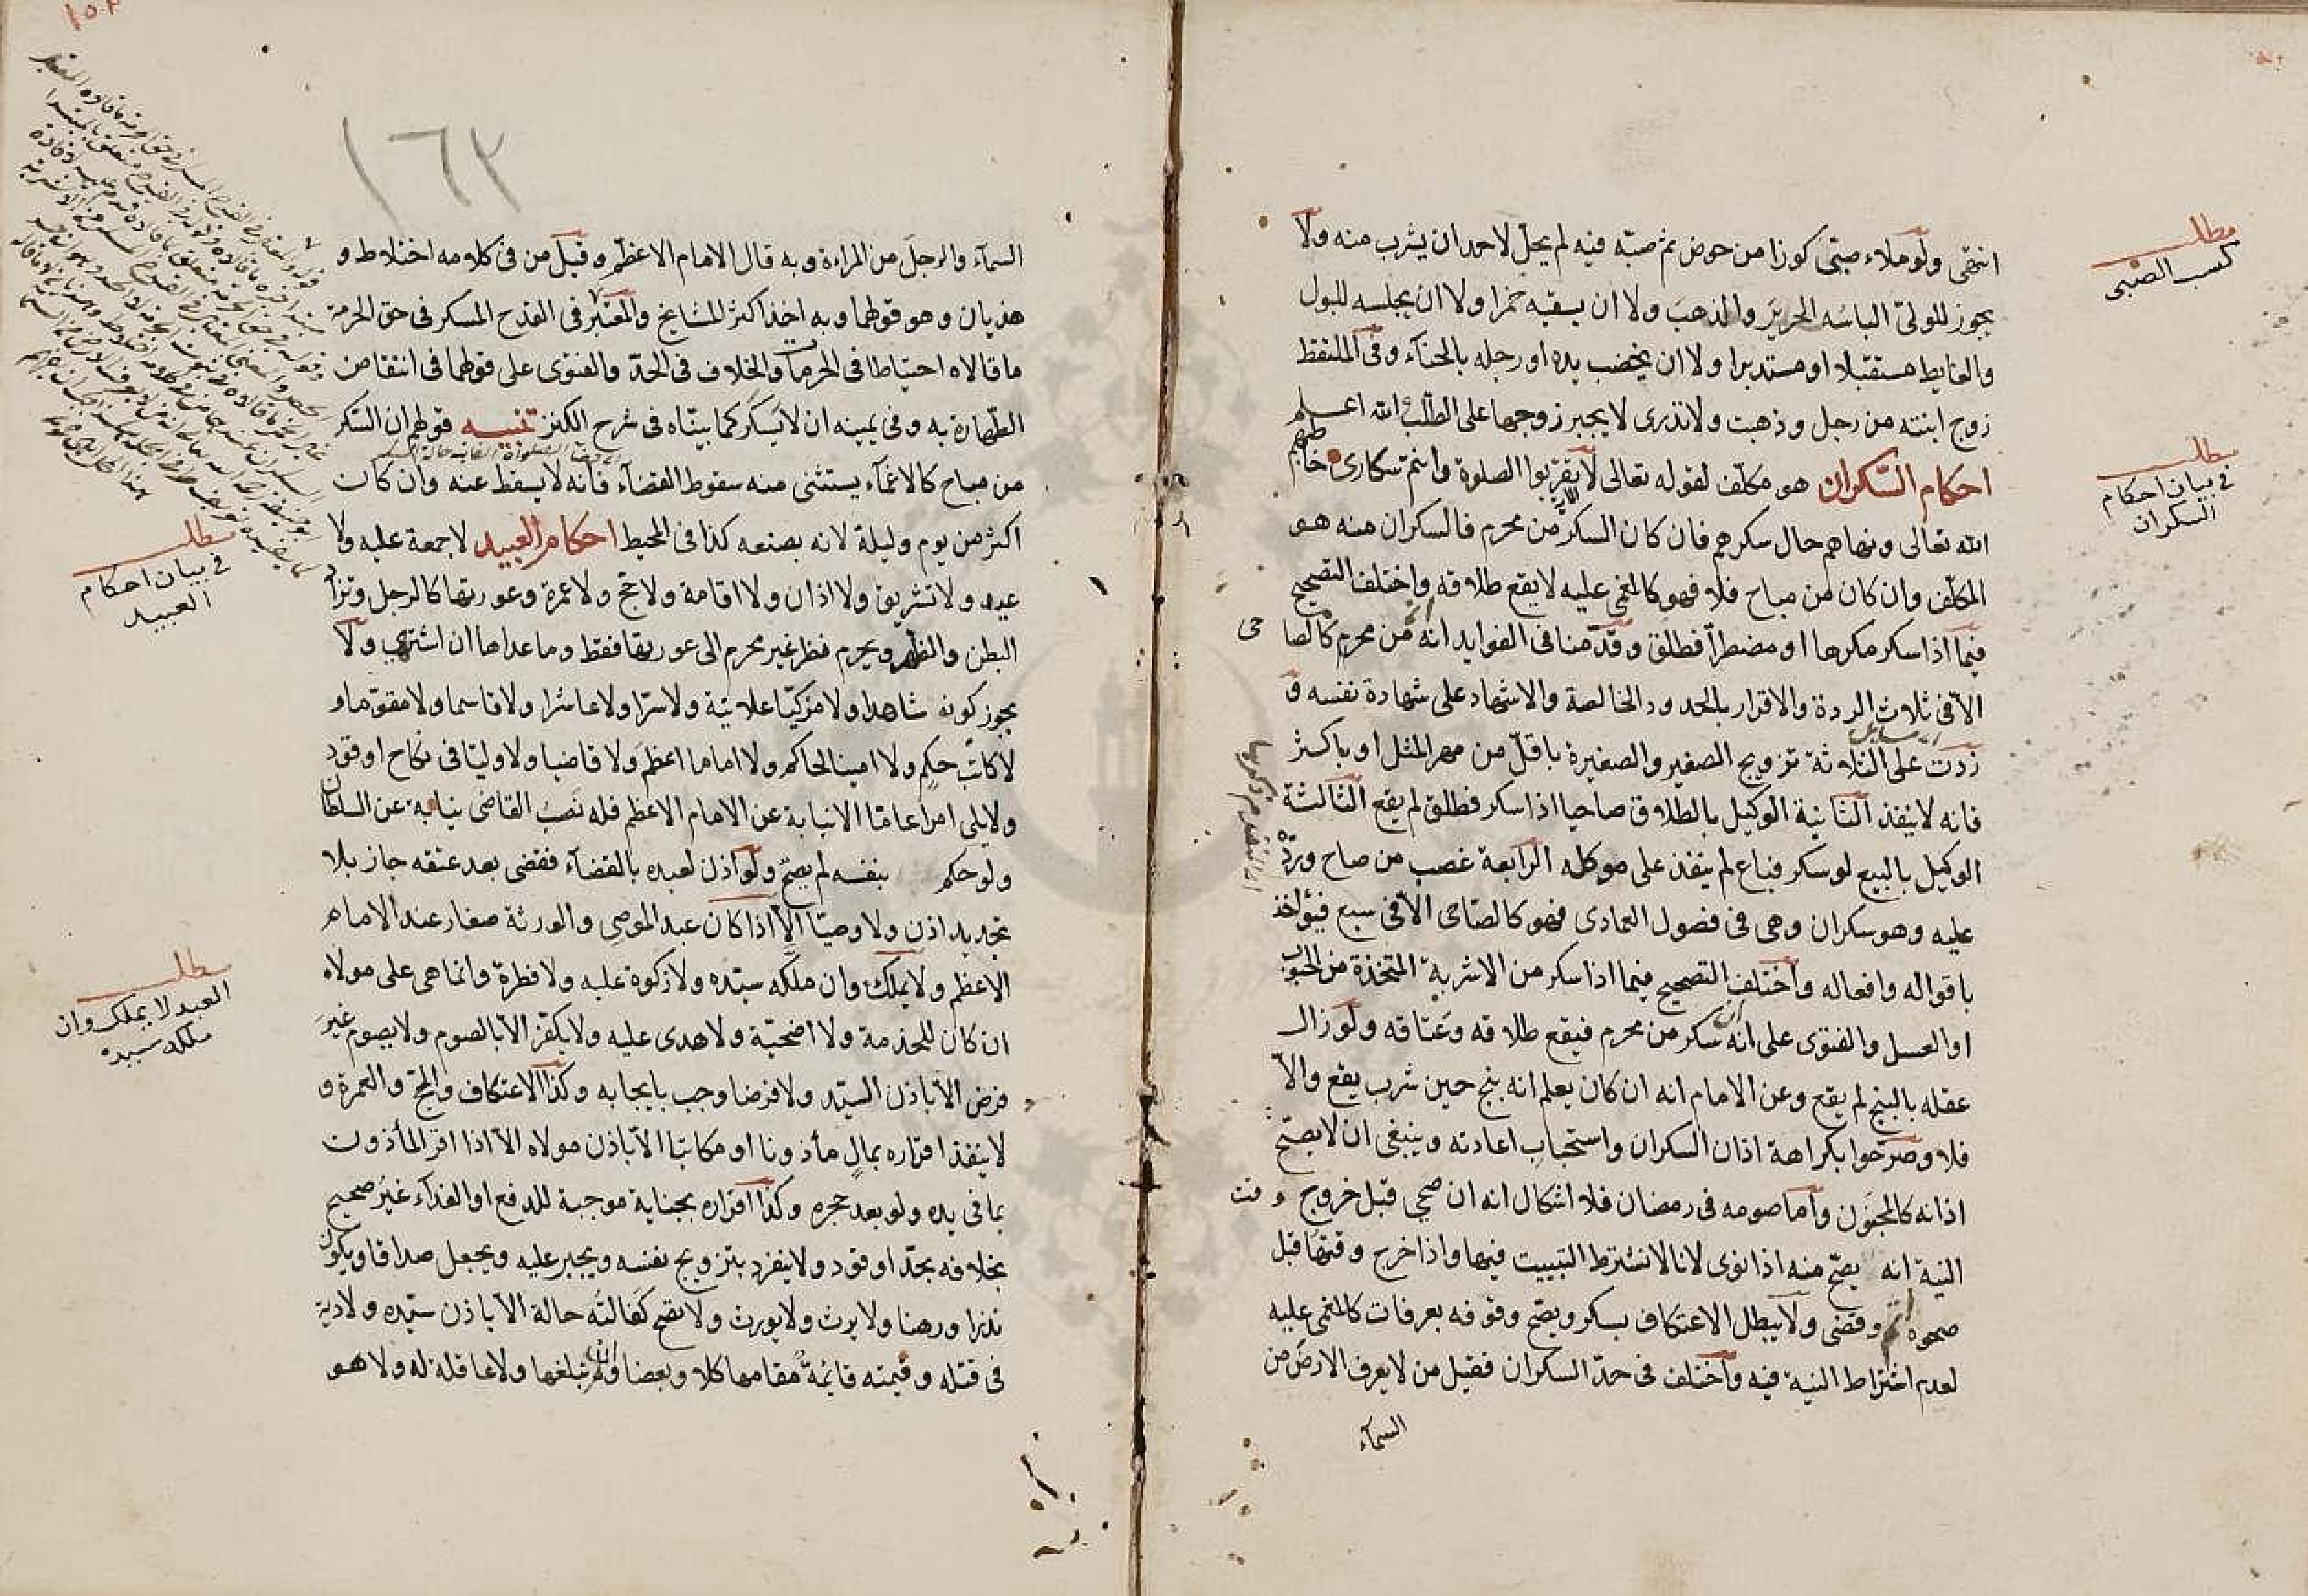 انتهى ولو ملاء صبى كوزا من حوض ثم صبّه فيه لم يحلّ لاحد ان يشرب منه ولا
يجوز للولى الباسُه الحريرَ والذهبَ ولا ان يسقيه خمرا ولا ان يجلسه للبول
والغايط مستقبلا او مستدبرا ولا ان يخضب يده او رجله بالحنآء وفى الملتقط
زوج ابنته من رجل وذهبت ولا تدرى لا يجبر زوجها على الطلب والله اعلم
احكام السّكران هو مكلّف لقوله تعالى لا تقربوا الصلوة وانتم سكارى خاطبهم
الله تعالى ونهاهم حال سكرهم فان كان السكر من محرم فالسكران منه هو
المكلّف وان كان من مباح فلا فهو كالمغمى عليه لا يقع طلاقه واختلف التصحيح
فيما اذا سكر مكرها او مضطرّا فطلق وقدّمنا فى الفوايد انه من محرم كالصاحى
الّا فى ثلاث الردة والاقرار بالحدود الخالصة والاشهاد على شهادة نفسه و
زدت على الثلاثة تزويج الصغير والصغيرة باقلّ من مهر المثل او باكثر
فانه لا ينفذ الثانية الوكيل بالطلاق صاحيا اذا سكر فطلق لم يقع الثالثة
الوكيل بالبيع لو سكر فباع لم ينفذ على موكله الرابعة غصب من صاح وردّه
عليه وهو سكران وهى فى فصول العمادى فهو كالصّاحى الّا فى سبع فيؤاخذ
باقواله وافعاله واختلف التصحيح فيما اذا سكر من الاشربة المتخذة من الحبوب
او العسل والفتوى على انه ان سكر من محرم فيقع طلاقه وعتاقه ولو زال
عقله بالبنج لم يقع وعن الامام انه ان كان يعلم انه بنج حين شرب يقع والّا
فلا وصرّحوا بكراهة اذان السكران واستحباب اعادته وينبغى ان لا يصحّ
اذانه كالمجنون وامّا صومه فى رمضان فلا اشكال انه ان صحى قبل خروج وقت
النية انه يصحّ منه اذا نوى لانا لا نشترط التبييت فيها واذا خرج وقتها قبل
صحوه اثم وقضى ولا يبطل الاعتكاف بسكر ويصّح وقوفه بعرفات كالمغمى عليه
لعدم اشتراط النية فيه واختلف فى حدّ السكران فقيل من لا يعرف الارضَ من
السمآء
مطلب
كسب الصبى
مطلب
فى بيان احكام
السكران
السمآء والرجلَ من المراءة وبه قال الامام الاعظم وقيل من فى كلامه اختلاط و
هذيان وهو قولهما وبه اخذ اكثر المشايخ والمعتبر فى القدح المسكر فى حق الحرمة
ما قالاه احتياطا فى الحرمات والخلاف فى الحدّ والفتوى على قولهما فى انتقاض
الطّهارة به وفى يمينه ان لا يسكر كما بينّاه فى شرح الكنز تنبيه قولهم ان السّكر
من مباح كالاغمآء يستثنى منه سقوط القضآء فانه لا يسقط عنه وان كان
اكثر من يوم وليلة لانه بصنعه كذا فى المحيط احكام العبيد لا جمعة عليه ولا
عيد ولا تشريق ولا اذان ولا اقامة ولا حجّ ولا عمرة وعورتها كالرجل وتزاد
البطن والظهر ويحرم نظر غير محرم الى عورتها فقط وما عداها ان اشتهى ولا
يجوز كونه شاهدا ولا مزكّيا علانيّة ولا سرّا ولا عاشرا ولا قاسما ولا مقوّما و
لا كاتبَ حكمٍ ولا امينا لحاكم ولا اماما اعظم ولا قاضيا ولا وليّا فى نكاح او قود
ولا يلى امرا عامّا الا نيابة عن الامام الاعظم فله نَصْبُ القاضى نيابة عن السلطان
ولو حكم بنفسه لم يصحّ ولو اذن لعبده بالقضآء فقضى بعد عتقه جاز بلا
تجديد اذن ولا وصيّا الّا اذا كان عبد الموصِى والورثة صغار عند الامام
الاعظم ولا يملك وان ملّكه سيّده ولا زكوة عليه ولا فطرة وانما هى على مولاه
ان كان للخدمة ولا اضحيّة ولا هدى عليه ولا يكفّر الّا بالصوم ولا يصوم غيرَ
فرض الّا باذن السيّد ولا فرضا وجب بايجابه وكذا الاعتكاف والحجّ والعمرة و
لا ينفذ اقراره بمالٍ مأذونا او مكاتبا الّا باذن مولاه الّا اذا اقر المأذون
بما فى يده ولو بعد حجره وكذا اقراره بجناية موجبة للدفع او الفدآء غير صحيح
بخلافه بحدّ او قود ولا ينفرد بتزويج نفسه ويجبر عليه ويجعل صداقا ويكون
نذرا ورهنا ولا يرث ولا يورث ولا تصح كفالته حالة الّا باذن سيّده ولا دية
فى قتله وقيمته قائمةٌ مقامها كلا وبعضا ولم تبلغها ولا عاقلة له ولا هو
مطلب
فى بيان احكام
العبيد
مطلب
العبد لا يملك وان
ملكه سيده
١٦٢